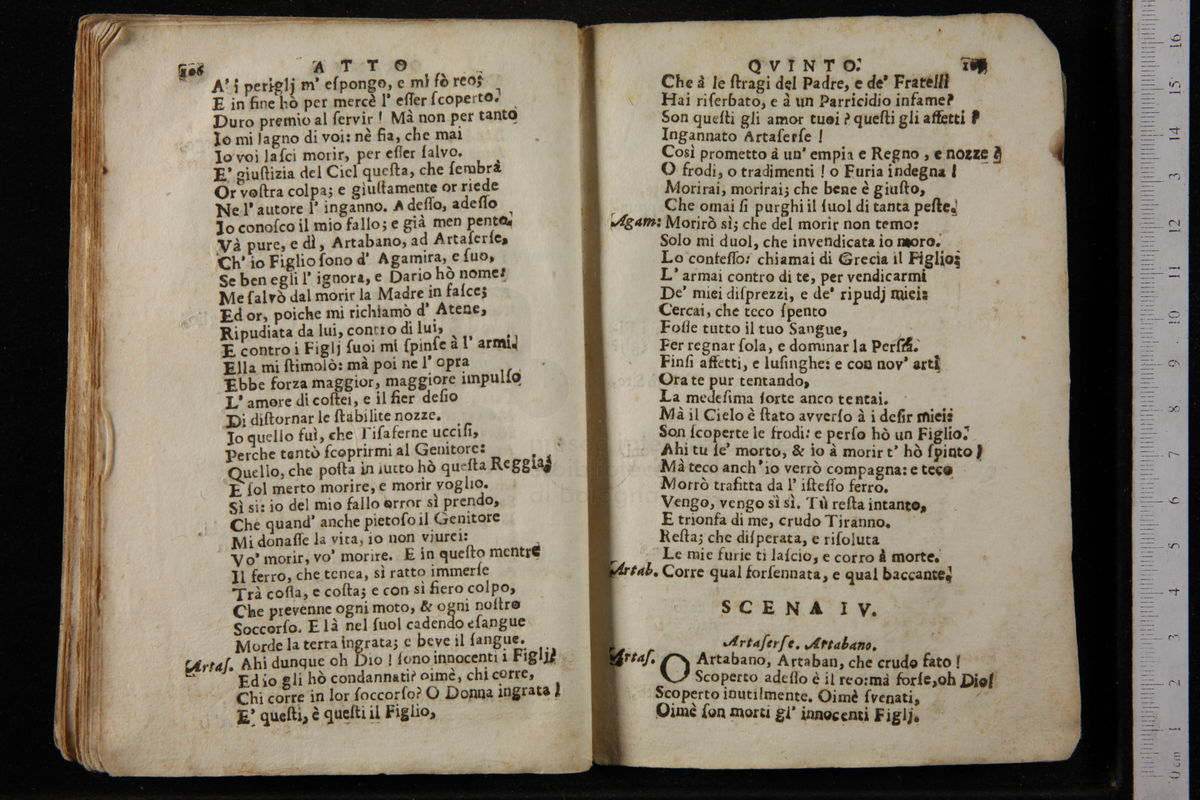 106
ATTO
A' i periglj m' eſpongo, e mi fò reo;
E in fine hò per mercè l' eſſer ſcoperto.
Duro premio al ſervir ! Mà non per tanto
Io mi lagno di voi: nè fia, che mai
Io voi laſci morir, per eſſer ſalvo.
E' giuſtizia del Ciel queſta, che ſembra
Or voſtra colpa; e giuſtamente or riede
Ne l' autore l' inganno. Adeſſo, adeſſo
Io conoſco il mio fallo; e già men pento.
Và pure, e dì, Artabano, ad Artaſerſe,
Ch' io Figlio ſono d' Agamira, e ſuo,
Se ben egli l' ignora, e Dario hò nome:
Me ſalvò dal morir la Madre in faſce;
Ed or, poiche mi richiamò d' Atene,
Ripudiata da lui, contro di lui,
E contro i Figlj ſuoi mi ſpinſe à l' armi.
Ella mi ſtimolò: mà poi ne l' opra
Ebbe forza maggior, maggiore impulſo
L' amore di coſtei, e il fier deſio
Di diſtornar le ſtabilite nozze.
Io quello fui, che Tiſaferne ucciſi,
Perche tentò ſcoprirmi al Genitore:
Quello, che poſta in lutto hò queſta Reggia;
E ſol merto morire, e morir voglio.
Sì si: io del mio fallo orror sì prendo,
Che quand' anche pietoſo il Genitore
Mi donaſſe la vita, io non viurei:
Vo' morir, vo' morire. E in queſto mentre
Il ferro, che tenea, sì ratto immerſe
Trà coſta, e coſta; e con sì fiero colpo,
Che prevenne ogni moto, & ogni noſtro
Soccorſo. E là nel ſuol cadendo eſangue
Morde la terra ingrata; e beve il ſangue.
Artaſ. Ahi dunque oh Dio ! ſono innocenti i Figlj?
Ed io gli hò condannati? oimè, chi corre,
Chi corre in lor ſoccorſo? O Donna ingrata !
E' queſti, è queſti il Figlio,
QVINTO.
107
Che à le ſtragi del Padre, e de' Fratelli
Hai riſerbato, e à un Parricidio infame?
Son queſti gli amor tuoi ? queſti gli affetti ?
Ingannato Artaſerſe !
Così prometto à un' empia e Regno , e nozze ?
O frodi, o tradimenti ! o Furia indegna !
Morirai, morirai; che bene è giuſto,
Che omai ſi purghi il ſuol di tanta peſte.
Agam: Morirò sì; che del morir non temo:
Solo mi duol, che invendicata io moro.
Lo confeſſo: chiamai di Grecia il Figlio;
L' armai contro di te, per vendicarmi
De' miei diſprezzi, e de' ripudj miei:
Cercai, che teco ſpento
Foſſe tutto il tuo Sangue,
Per regnar ſola, e dominar la Perſia.
Finſi affetti, e luſinghe: e con nov' arti
Ora te pur tentando,
La medeſima ſorte anco tentai.
Mà il Cielo è ſtato avverſo à i deſir miei:
Son ſcoperte le frodi: e perſo hò un Figlio.
Ahi tu ſe' morto, & io à morir t' hò ſpinto !
Mà teco anch' io verrò compagna: e teco
Morrò trafitta da l' iſteſſo ferro.
Vengo, vengo sì sì. Tù reſta intanto,
E trionfa di me, crudo Tiranno.
Reſta; che diſperata, e riſoluta
Le mie furie ti laſcio, e corro à morte.
Artab. Corre qual forſennata, e qual baccante.
SCENA IV.
Artaſerſe. Artabano.
Artaſ. O Artabano, Artaban, che crudo fato !
Scoperto adeſſo è il reo: mà forſe, oh Dio!
Scoperto inutilmente. Oimè ſvenati,
Oimè ſon morti gl' innocenti Figlj.